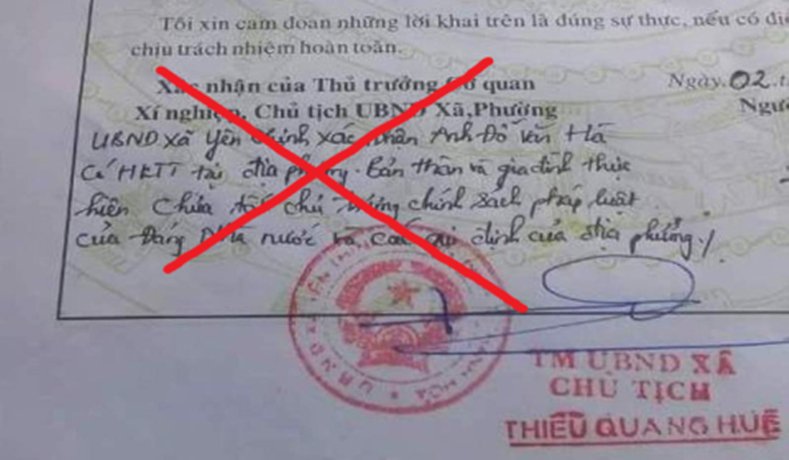 Tôi xin cam đoan những lời khai trên là đúng sự thực, nếu có đi
chịu trách nhiệm hoàn toàn.
Xác nhận của Thủ trưởng Cơ quan
Ngày 02 t
Xí nghiệp, Chủ tịch UBND Xã,Phường
Ngườ
UBND xã Yên Thịnh xác nhận Anh Đỗ Văn Hà
Có HKTT tại địa phương. Bản thân và gia đình thực
hiện Chưa tốt chủ trương chính sách pháp luật
của Đảng Nhà nước và các qui định của địa phương./.
TM UBND XÃ
CHỦ TỊCH
THIỀU QUANG HUẾ